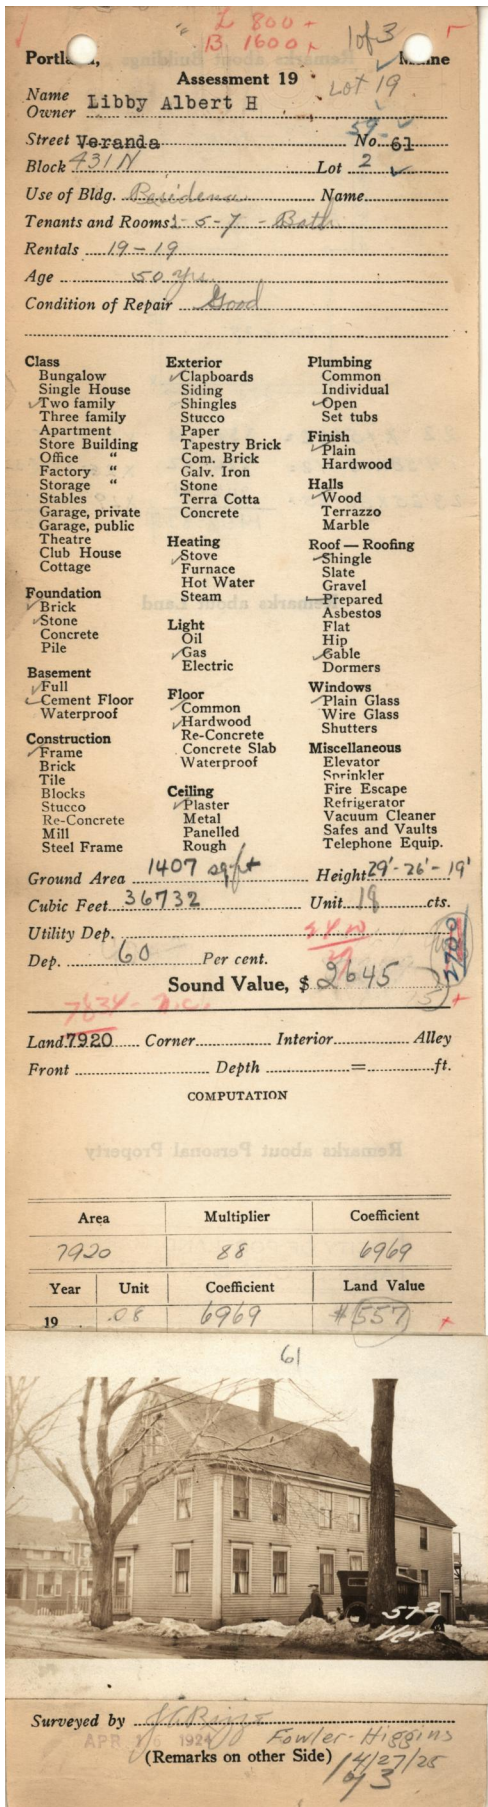 L 800 +
B 1600 +
1 of 3
Portland, Maine
Assessment 19
Lot 19
Name
Owner Libby Albert H
59
Street Veranda No. 61
Block 431 N Lot 2
Use of Bldg. Residence Name
Tenants and Rooms 1-5-7 - Bath
Rentals 19-19
Age 50 yrs.
Condition of Repair Good
Class
Bungalow
Single House
Two family
Three family
Apartment
Store Building
Office "
Factory "
Storage "
Stables
Garage, private
Garage, public
Theatre
Club House
Cottage
Foundation
Brick
Stone
Concrete
Pile
Basement
Full
Cement Floor
Waterproof
Construction
Frame
Brick
Tile
Blocks
Stucco
Re-Concrete
Mill
Steel Frame
Exterior
Clapboards
Siding
Shingles
Stucco
Paper
Tapestry Brick
Com. Brick
Galv. Iron
Stone
Terra Cotta
Concrete
Heating
Stove
Furnace
Hot Water
Steam
Light
Oil
Gas
Electric
Floor
Common
Hardwood
Re-Concrete
Concrete Slab
Waterproof
Ceiling
Plaster
Metal
Panelled
Rough
Plumbing
Common
Individual
Open
Set tubs
Finish
Plain
Hardwood
Halls
Wood
Terrazzo
Marble
Roof — Roofing
Shingle
Slate
Gravel
Prepared
Asbestos
Flat
Hip
Gable
Dormers
Windows
Plain Glass
Wire Glass
Shutters
Miscellaneous
Elevator
Sprinkler
Fire Escape
Refrigerator
Vacuum Cleaner
Safes and Vaults
Telephone Equip.
Ground Area 1407 sq ft Height 29'-26'-19'
Cubic Feet 36732 Unit 18 cts.
Utility Dep.
Dep. 60 Per cent.
2700
Sound Value, $ 2645
Land 7920 Corner Interior Alley
Front Depth = ft.
COMPUTATION
Remarks about Personal Property
Area Multiplier Coefficient
7920 88 6969
Year Unit Coefficient Land Value
19 .08 6969 $557
61
572
Ver
Surveyed by
APR 16 1924 Fowler-Higgins
(Remarks on other Side) 4/27/25